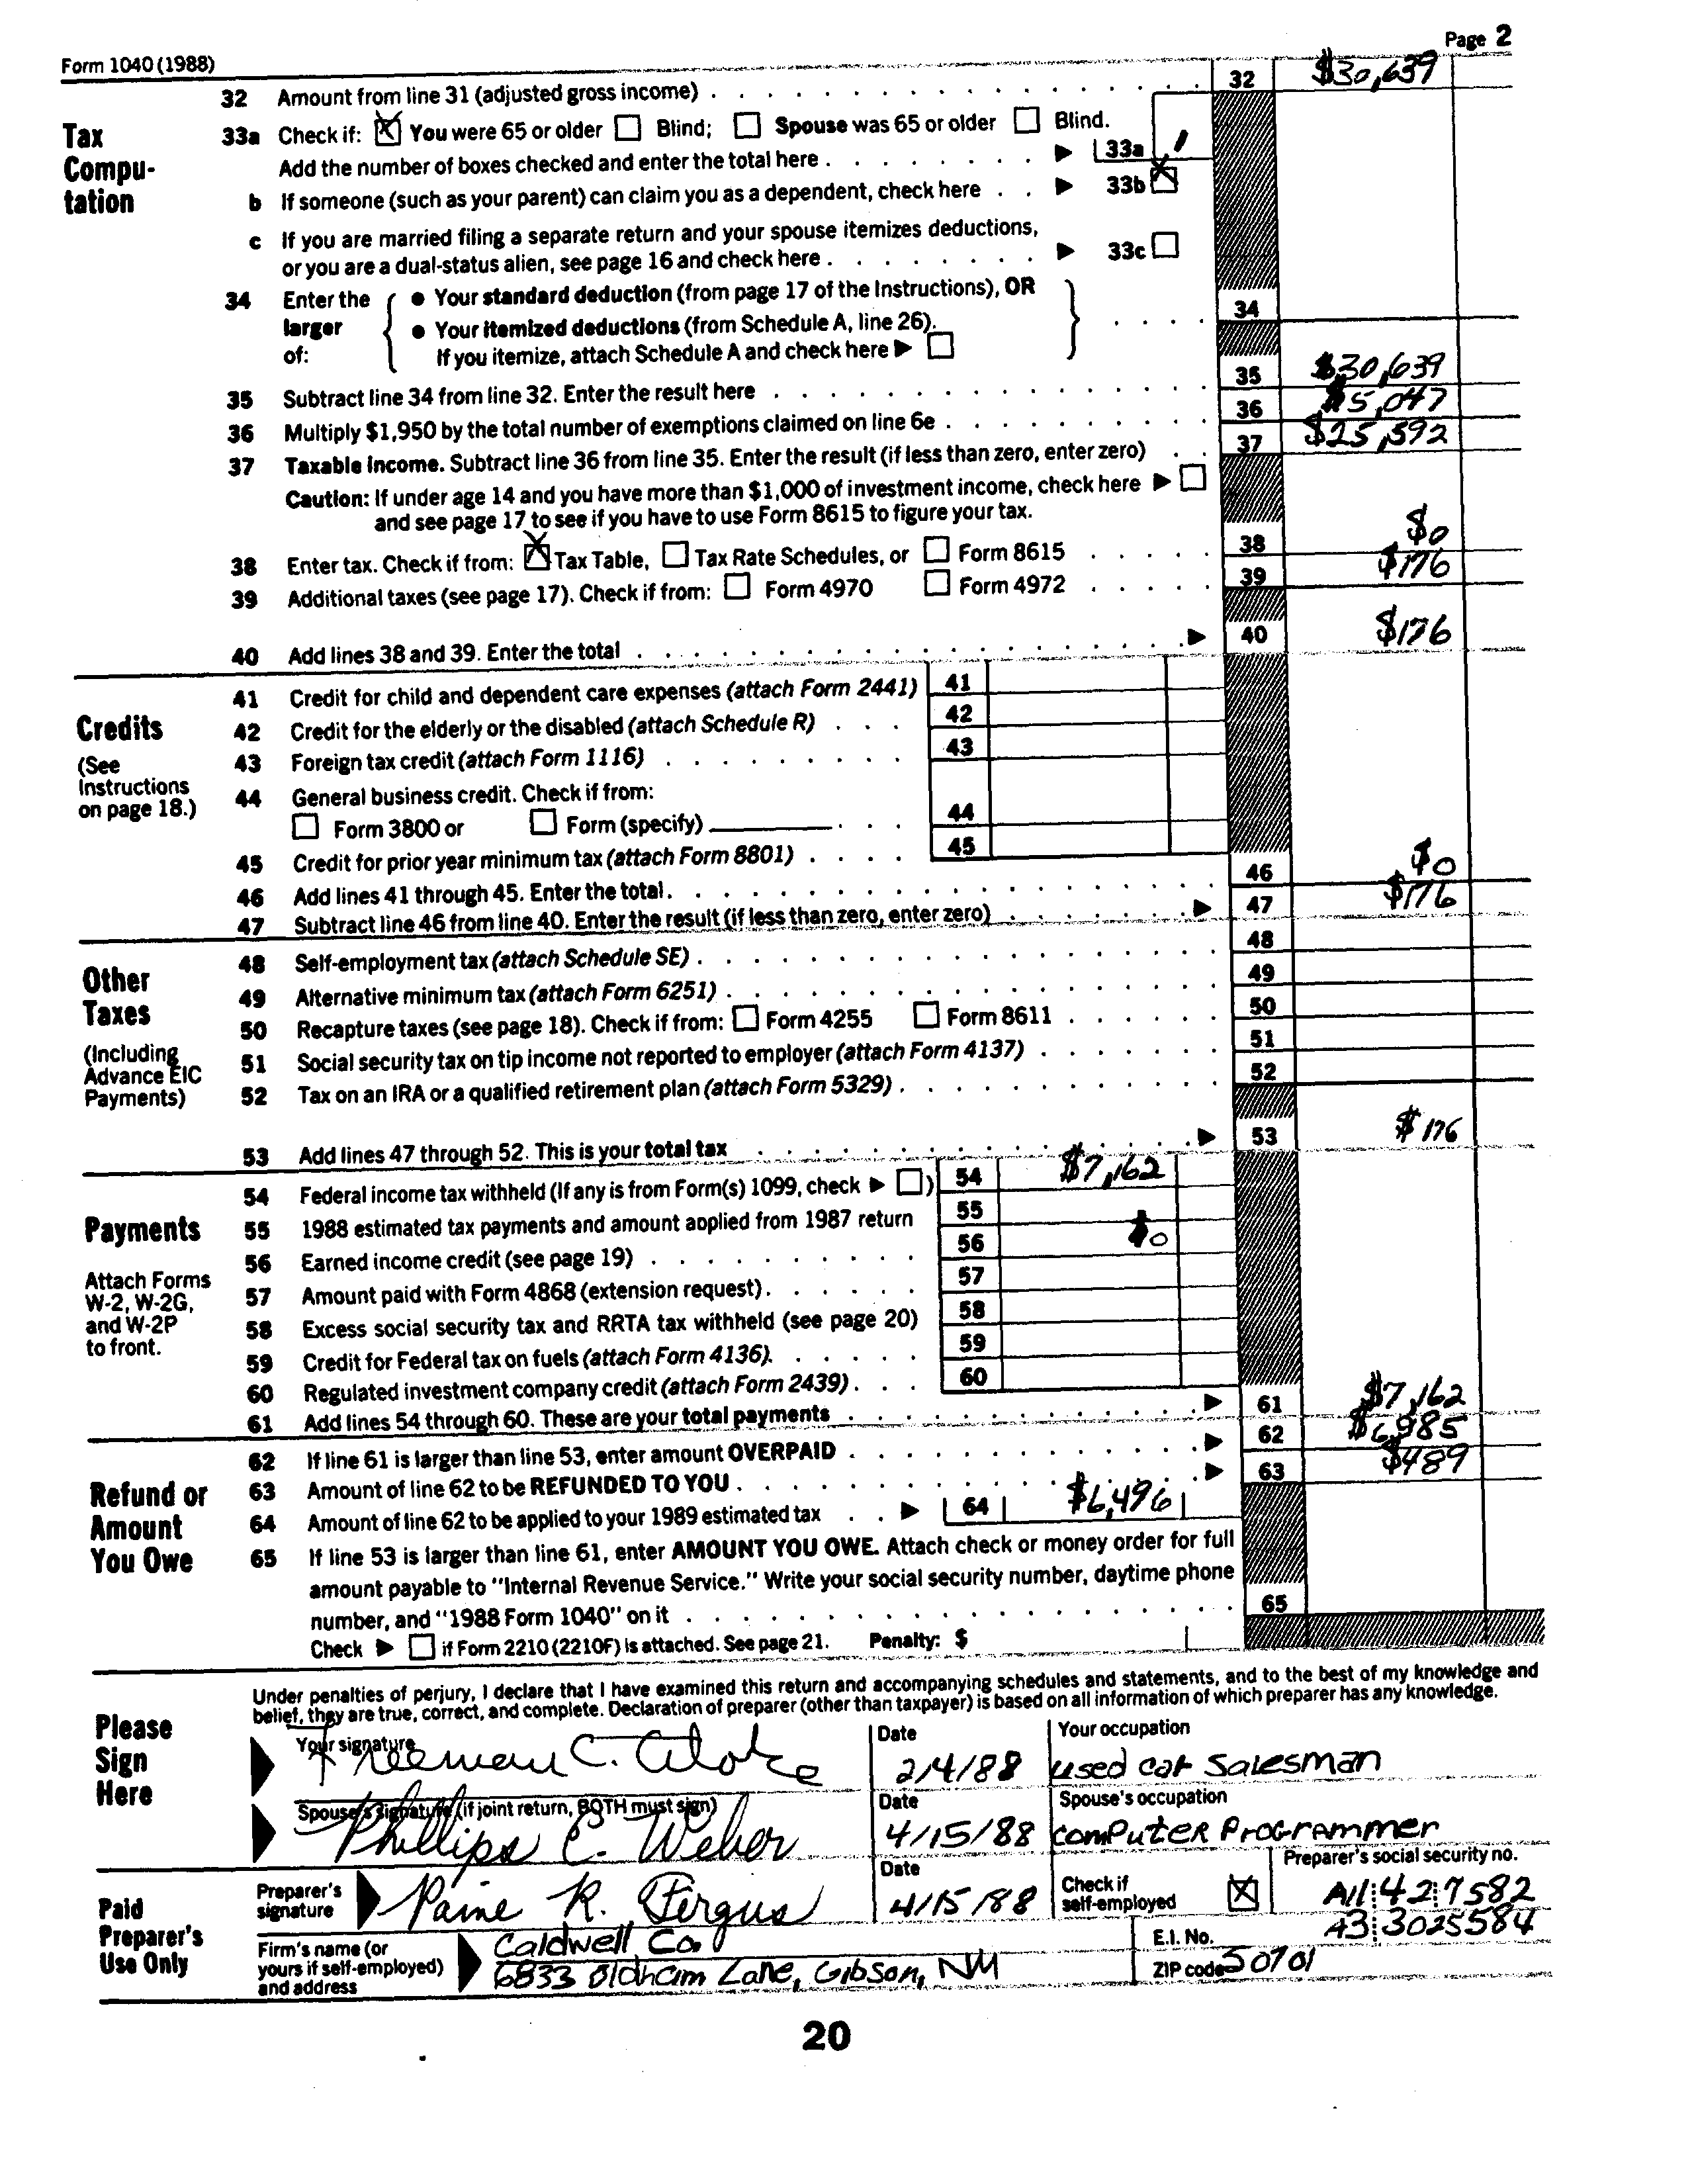 Form 1040 (1988) Page 2
32 Amount from line 31 (adjusted gross income) 32 $30,639
Tax Compu- tation
33a Check if: X You were 65 or older Blind; Spouse was 65 or older Blind.
Add the number of boxes checked and enter the total here 33a 1
b If someone (such as your parent) can claim you as a dependent, check here 33b X
c If you are married filing a separate return and your spouse itemizes deductions,
or you are a dual-status alien, see page 16 and check here 33c
34 Enter the larger of:
• Your standard deduction (from page 17 of the Instructions), OR
• Your itemized deductions (from Schedule A, line 26).
If you itemize, attach Schedule A and check here ▶
34
35 Subtract line 34 from line 32. Enter the result here 35 $30,639
36 Multiply $1,950 by the total number of exemptions claimed on line 6e 36 $5,047
37 Taxable income. Subtract line 36 from line 35. Enter the result (if less than zero, enter zero) 37 $25,592
Caution: If under age 14 and you have more than $1,000 of investment income, check here ▶
and see page 17 to see if you have to use Form 8615 to figure your tax.
38 Enter tax. Check if from: X Tax Table, Tax Rate Schedules, or Form 8615 38 $0
39 Additional taxes (see page 17). Check if from: Form 4970 Form 4972 39 $176
40 Add lines 38 and 39. Enter the total 40 $176
Credits
(See Instructions on page 18.)
41 Credit for child and dependent care expenses (attach Form 2441) 41
42 Credit for the elderly or the disabled (attach Schedule R) 42
43 Foreign tax credit (attach Form 1116) 43
44 General business credit. Check if from:
Form 3800 or Form (specify) 44
45 Credit for prior year minimum tax (attach Form 8801) 45
46 Add lines 41 through 45. Enter the total 46 $0
47 Subtract line 46 from line 40. Enter the result (if less than zero, enter zero) 47 $176
Other Taxes
(Including Advance EIC Payments)
48 Self-employment tax (attach Schedule SE) 48
49 Alternative minimum tax (attach Form 6251) 49
50 Recapture taxes (see page 18). Check if from: Form 4255 Form 8611 50
51 Social security tax on tip income not reported to employer (attach Form 4137) 51
52 Tax on an IRA or a qualified retirement plan (attach Form 5329) 52
53 Add lines 47 through 52. This is your total tax 53 $176
Payments
Attach Forms W-2, W-2G, and W-2P to front.
54 Federal income tax withheld (If any is from Form(s) 1099, check ▶ ) 54 $7,162
55 1988 estimated tax payments and amount applied from 1987 return 55
56 Earned income credit (see page 19) 56 $0
57 Amount paid with Form 4868 (extension request) 57
58 Excess social security tax and RRTA tax withheld (see page 20) 58
59 Credit for Federal tax on fuels (attach Form 4136) 59
60 Regulated investment company credit (attach Form 2439) 60
61 Add lines 54 through 60. These are your total payments 61 $7,162
Refund or Amount You Owe
62 If line 61 is larger than line 53, enter amount OVERPAID 62 $6,985
63 Amount of line 62 to be REFUNDED TO YOU 63 $489
64 Amount of line 62 to be applied to your 1989 estimated tax 64 $6,496
65 If line 53 is larger than line 61, enter AMOUNT YOU OWE. Attach check or money order for full
amount payable to "Internal Revenue Service." Write your social security number, daytime phone
number, and "1988 Form 1040" on it 65
Check ▶ if Form 2210 (2210F) is attached. See page 21. Penalty: $
Please Sign Here
Under penalties of perjury, I declare that I have examined this return and accompanying schedules and statements, and to the best of my knowledge and
belief, they are true, correct, and complete. Declaration of preparer (other than taxpayer) is based on all information of which preparer has any knowledge.
Your signature Freeman C. Date 2/4/88 Your occupation used car salesman
Spouse's signature (if joint return, BOTH must sign) Phillips C. Weber Date 4/15/88 Spouse's occupation computer programmer
Paid Preparer's Use Only
Preparer's signature Paine R. Fergus Date 4/15/88 Check if self-employed X Preparer's social security no. A11 42 7582
Firm's name (or yours if self-employed) and address Caldwell Co. E.I. No. A3 3025584
6833 Oldham Lane, Gibson, NM ZIP code 50701
20